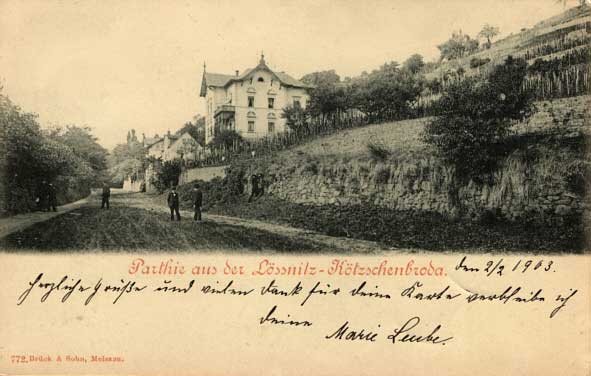 Parthie aus der Lössnitz-Kötzschenbroda.
den 2/2 1903
Herzliche Grüße und vielen Dank für deine Karte verbleibe ich
deine Marie Leube.
772. Brück & Sohn, Meissen.